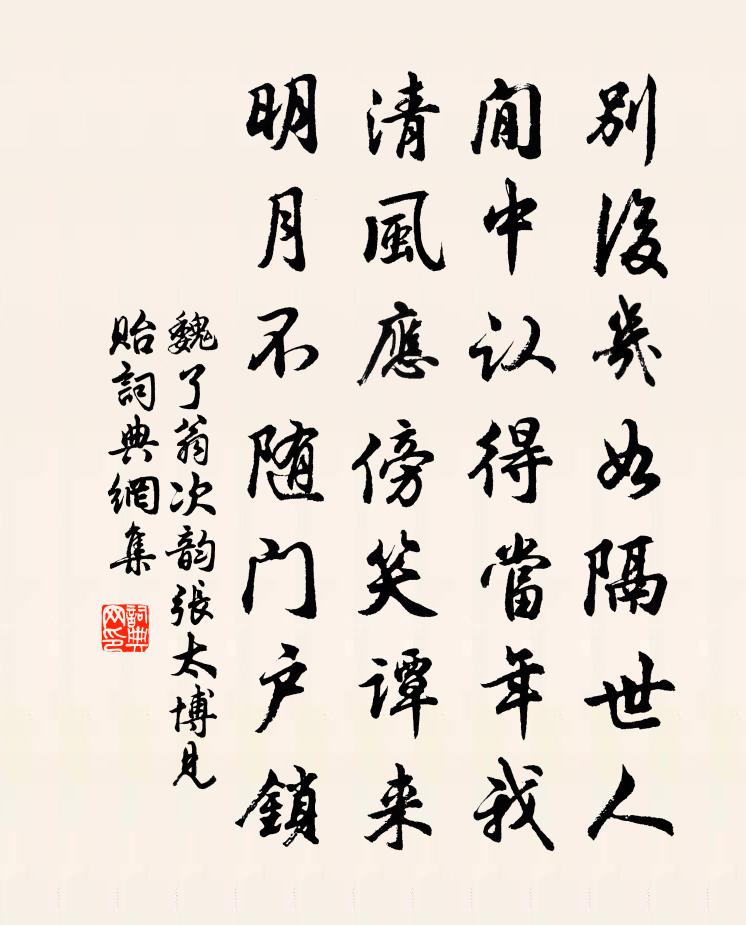 別後幾如隔世人
閒中认得當年我
清風應傍笑譚来
明月不随门户鎖
魏了翁次韵張太博見
貽詞典網集
詞典网印